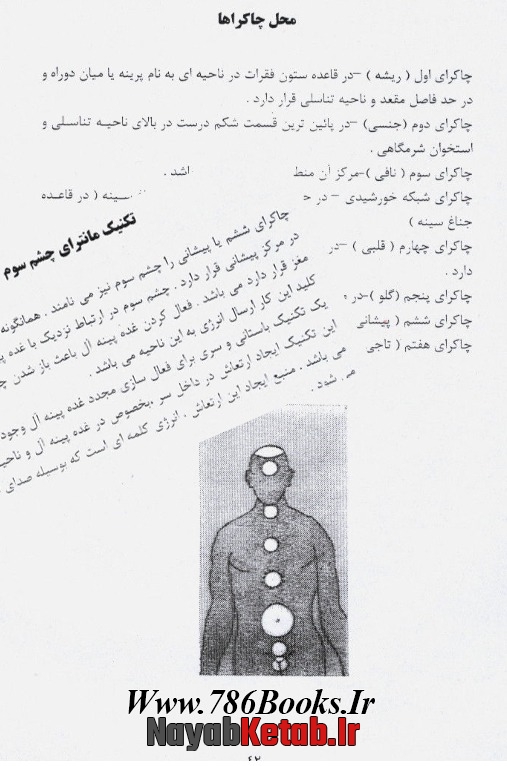 محل چاکراها
چاکرای اول ( ریشه ) –در قاعده ستون فقرات در ناحیه ای به نام پرینه یا میان دوراه و
در حد فاصل مقعد و ناحیه تناسلی قرار دارد .
چاکرای دوم (جنسی) –در پائین ترین قسمت شکم درست در بالای ناحیه تناسلی و
استخوان شرمگاهی .
چاکرای سوم ( نافی )-مرکز آن منط اشد .
چاکرای شبکه خورشیدی – در ـسینه ( در قاعـده
جناغ سینه )
چاکرای چهارم ( قلبی ) –در
دارد .
چاکرای پنجم (گلو )–در
چاکرای ششم ( پیشانی
چاکرای هفتم ( تاجی
تکنیک مانترای چشم سوم
چاکرای ششم یا پیشانی را چشم سوم نیز می نامند . همانگونه
در مرکز پیشانی قرار دارد . چشم سوم در ارتباط نزدیک با غده
مغز قرار دارد می باشد . فعال کردن غده پینه آل باعث باز شدن
کلید این کار ارسال انرژی به این ناحیه می باشد .
یک تکنیک باستانی و سری برای فعال سازی مجدد غده پینه آل وجود
این تکنیک ایجاد ارتعاش در داخل سر ،بخصوص در غده پینه آل و ناحیه
می باشد . منبع ایجاد این ارتعاش ، انرژی کلمه ای است که بوسیله صدای
می شود .
Www.786Books.Ir
NayabKetab.Ir
۴۲